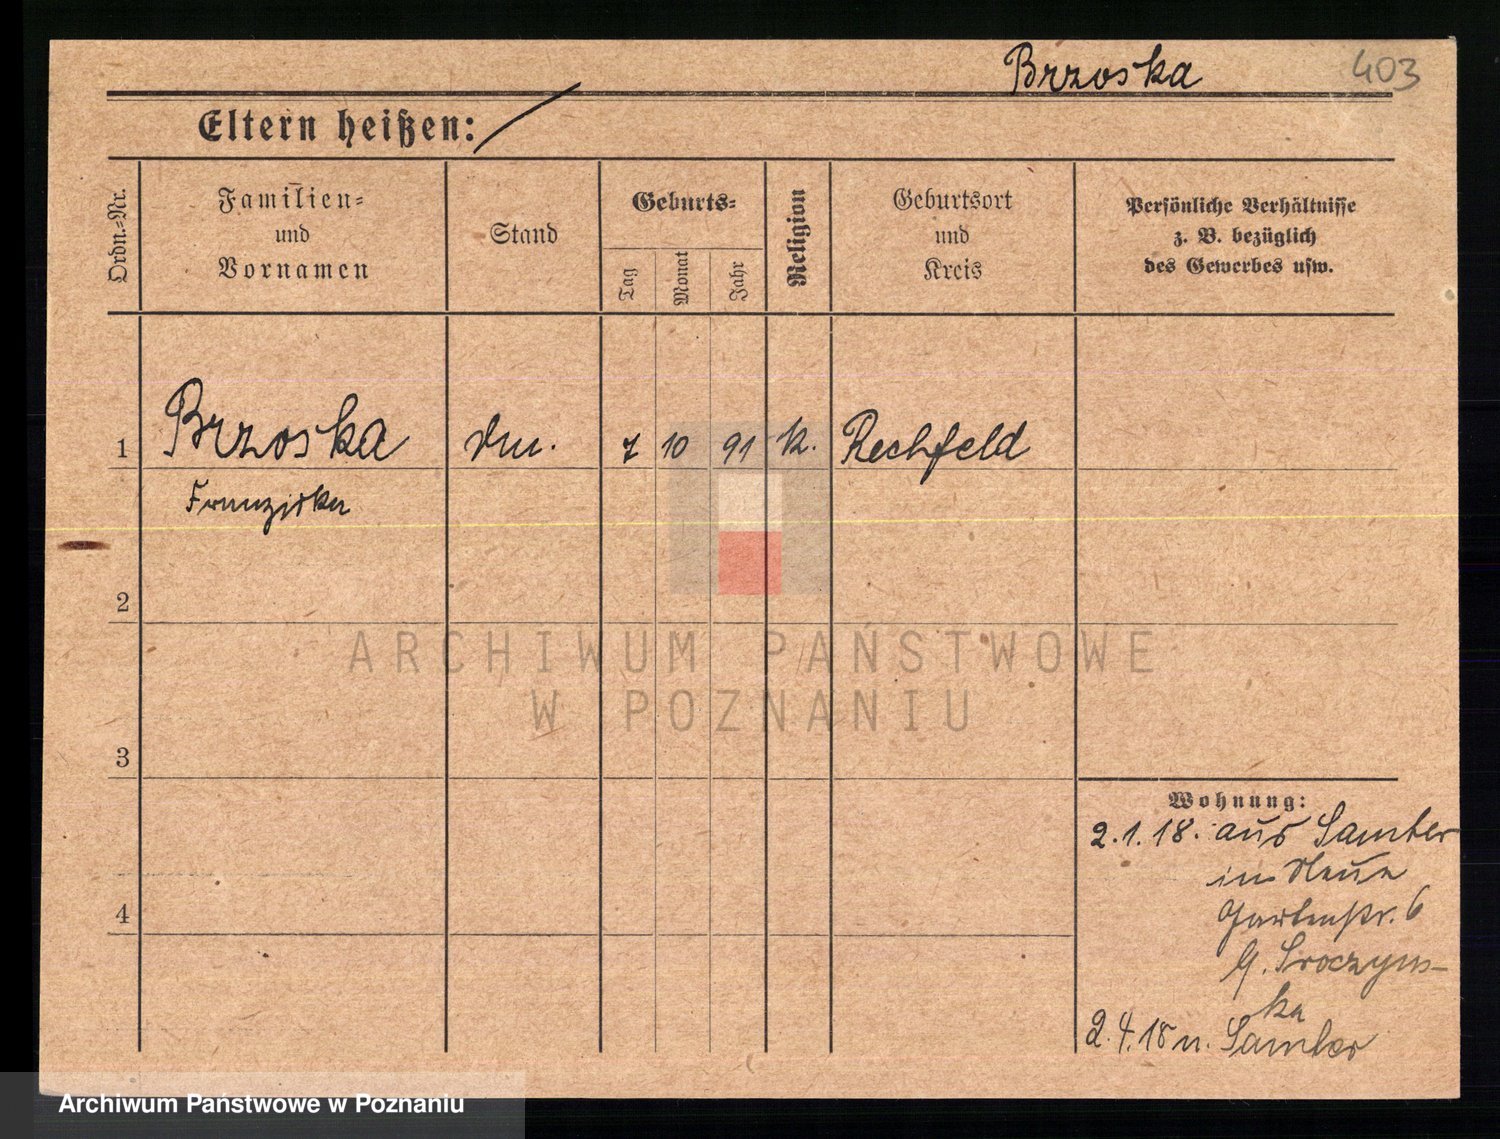 Brzoska 403
Eltern heißen: /
Ordn.-Nr.
Familien-
und
Vornamen
Stand
Geburts-
Tag
Monat
Jahr
Religion
Geburtsort
und
Kreis
Persönliche Verhältnisse
z. B. bezüglich
des Gewerbes usw.
1 Brzoska 7 10 91 k. Rechfeld
Franziska
2
ARCHIWUM PAŃSTWOWE
W POZNANIU
3
Wohnung:
2.1.18. aus Samter
in Neue
4
Gartenstr. 6
Sroczyns-
ka
2.4.18 n. Samter
Archiwum Państwowe w Poznaniu